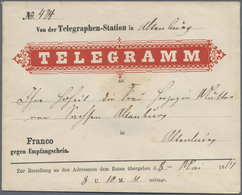 No. 474
Von der Telegraphen-Station in Altenburg
TELEGRAMM
an
Ihre Hoheit die Frau Herzogin Mutter
von Sachsen Altenburg
Altenburg
Franco
gegen Empfangschein.
Zur Bestellung an den Adressaten dem Boten übergeben d. 8 Mai 186
8 U. 10 M. mittags.